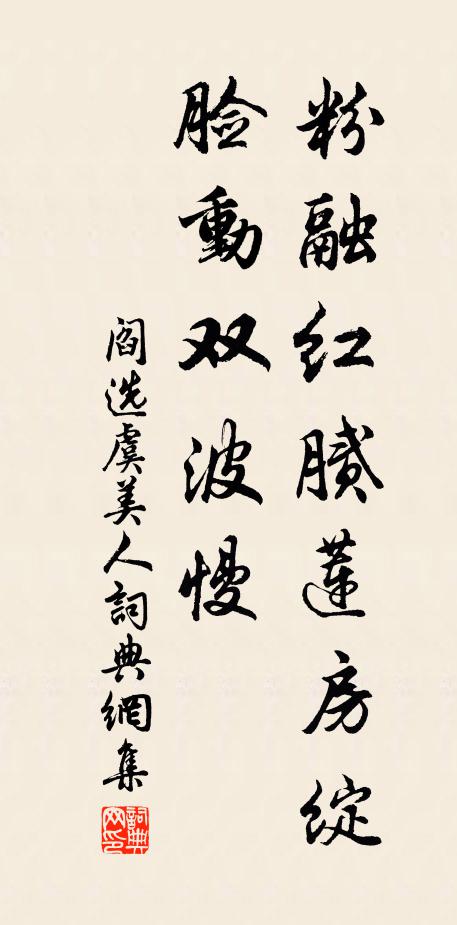 粉融红腻莲房绽
脸動双波慢
阎选虞美人詞典網集
詞典网印